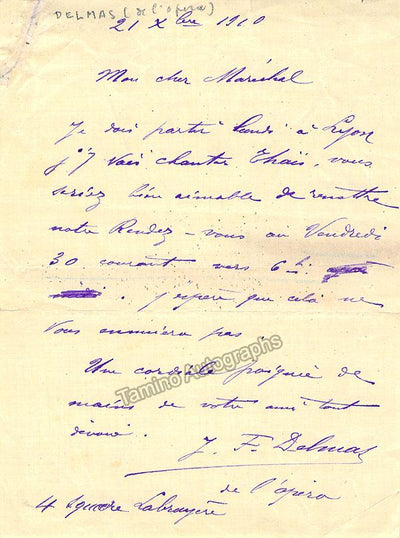 DELMAS (de l'opéra)
21 Xbre 1910
Mon cher Maréchal
Je dois partir Lundi à Lyon
j'y vais chanter Thaïs, vous
seriez bien aimable de remettre
notre Rendez-vous au Vendredi
30 courant vers 6h.
. j'espère que cela ne
vous ennuiera pas
Une cordiale poignée de
mains de votre ami tout
dévoué.
J. F. Delmas
de l'opéra
4 Square Labruyère
Tamino Autographs